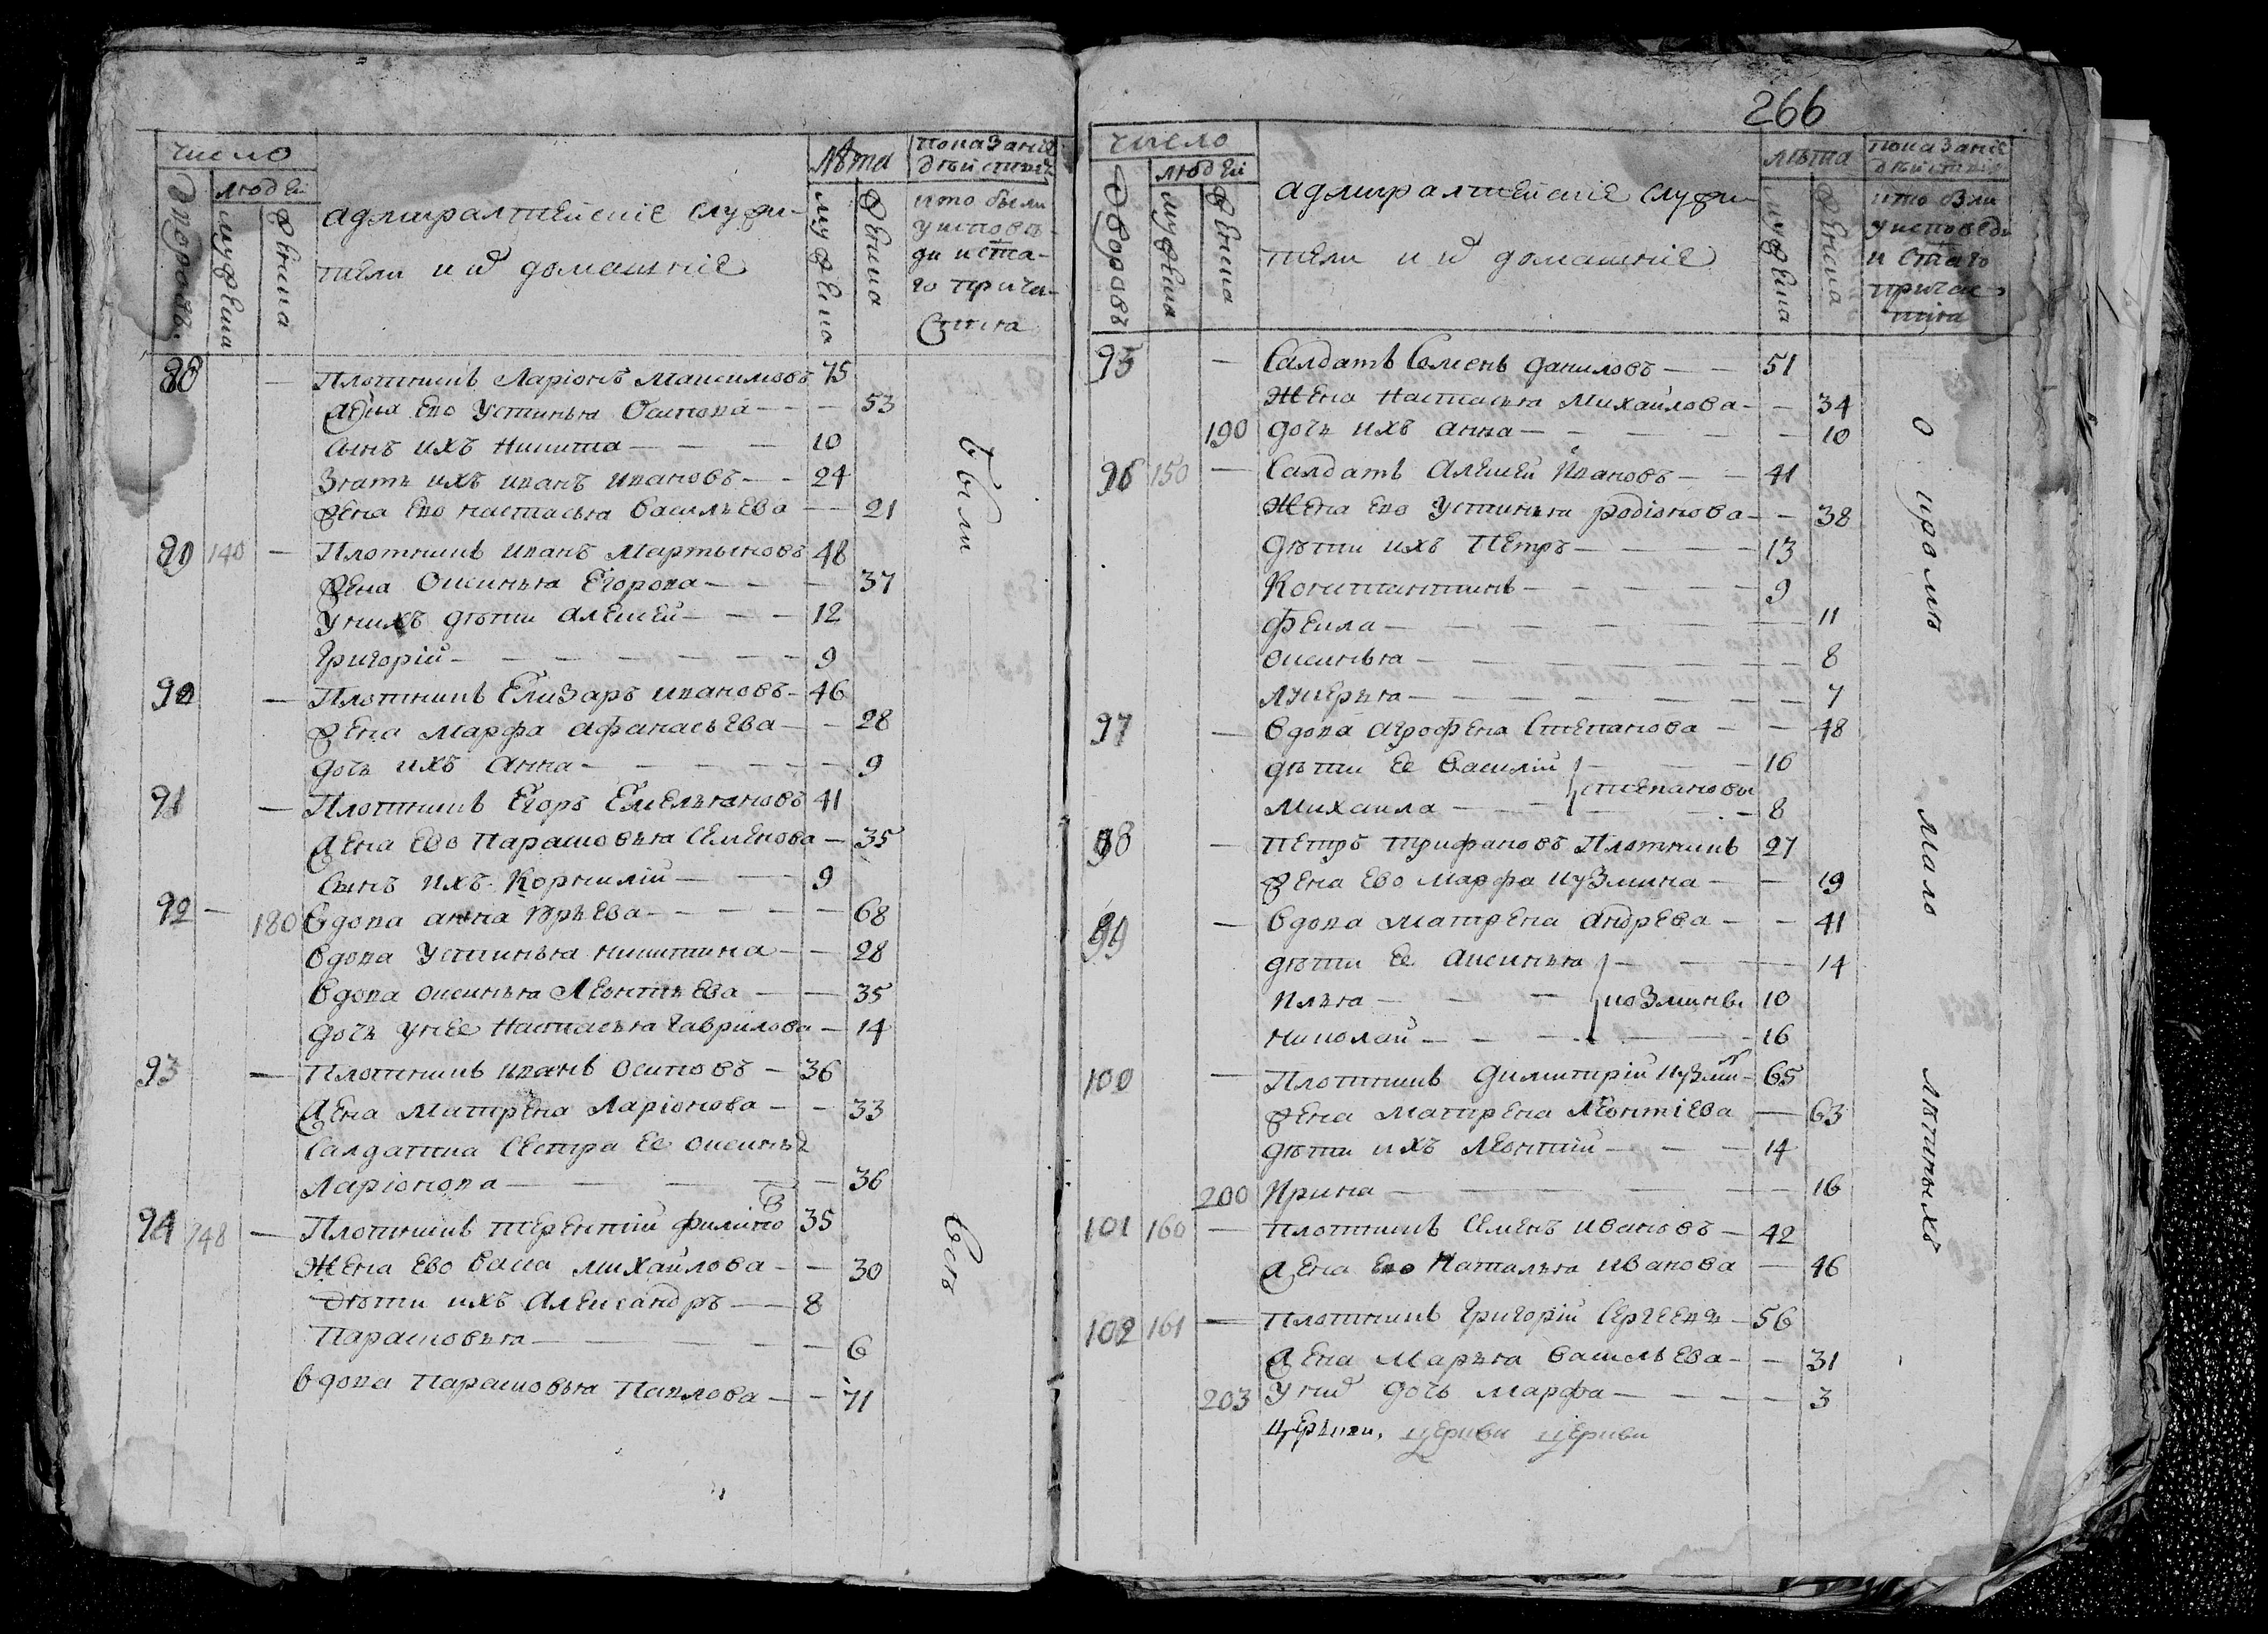 число
дворовъ
людей
мужеска
женска
адмиралтейскіе служи-
тели и их домашніе
лѣта
мужеска
женска
показаніе
дѣйствія
кто были
у исповѣ-
ди и свта-
го прича-
стия
88 — Плотникъ Ларіонъ Максимовъ 75
жена ево Устинья Осипова — — 53
Сынъ ихъ Никита — — — 10
Зять ихъ Иванъ Ивановъ — — 24
жена ево настасья Васильева — — 21
89 140 — Плотникъ иванъ Мартыновъ 48
жена Оксинья Егорова — — — 37
У нихъ дѣти алексей — — — 12
Григорій — — — — — — 9
90 — Плотникъ Елизаръ ивановъ — 46
жена марфа афанасьева — — 28
дочь ихъ анна — — — — — 9
91 — Плотникъ Егоръ Емельяновъ 41
жена ево парасковья семенова — 35
Сынъ ихъ Корнилій — — — 9
92 — 180 Вдова анна юрьева — — — — 68
Вдова Устинья никитина — — 28
Вдова оксинья Леонтьева — — 35
дочь у нее Настасья гаврилова — 14
93 — Плотникъ иванъ осиповъ — 36
жена Матрена Ларіонова — — 33
Салдатка сестра ее оксинья
Ларіонова — — — — — 36
94 148 — Плотникъ терентій филипо в 35
Жена ево Васса михайлова — — 30
Дѣти ихъ Александръ — — 8
Парасковья — — — — — 6
Вдова парасковья Павлова — — 71
были
всѣ
266
число
дворовъ
людей
мужеска
женска
адмиралтейскіе служи-
тели и их домашніе
лѣта
мужеска
женска
показаніе
дѣйствія
кто были
у исповеди
и свтаго
причас-
тия
95 — Салдатъ Семенъ даниловъ — — 51
Жена настасья Михайлова — — 34
190 дочь ихъ анна — — — — — 10
96 150 — Салдатъ алексей Ивановъ — — 41
Жена ево Устинья родіонова — — 38
Дѣти ихъ Петръ — — — — 13
Констинтинъ — — — — — 9
Фекла — — — — — — — 11
оксинья — — — — — — — 8
Лукерья — — — — — — — 7
97 — Вдова агрофена Степанова — — 48
дѣти ее Василій — — — 16
степановы
Михаила — — — — 8
98 — Петръ трифановъ Плотникъ 27
жена ево марфа кузмина — — 19
99 — Вдова матрена андрева — — 41
дѣти ее аксинья — — — — 14
Илья — — — козмины 10
николай — — — — — 16
100 — Плотникъ димитрій кузмин — 65
жена матрена леонтіева — 63
дѣти ихъ леонтій — — — 14
200 Ирина — — — — — — 16
101 160 — плотникъ семенъ ивановъ — 42
жена ево наталья иванова — 46
102 161 — плотникъ григорій Сергеевъ — 56
жена марья васильева — — 31
203 у них дочь марфа — — — — 3
церкви, церкви церкви
о кромѣ
мало
лѣтныхъ